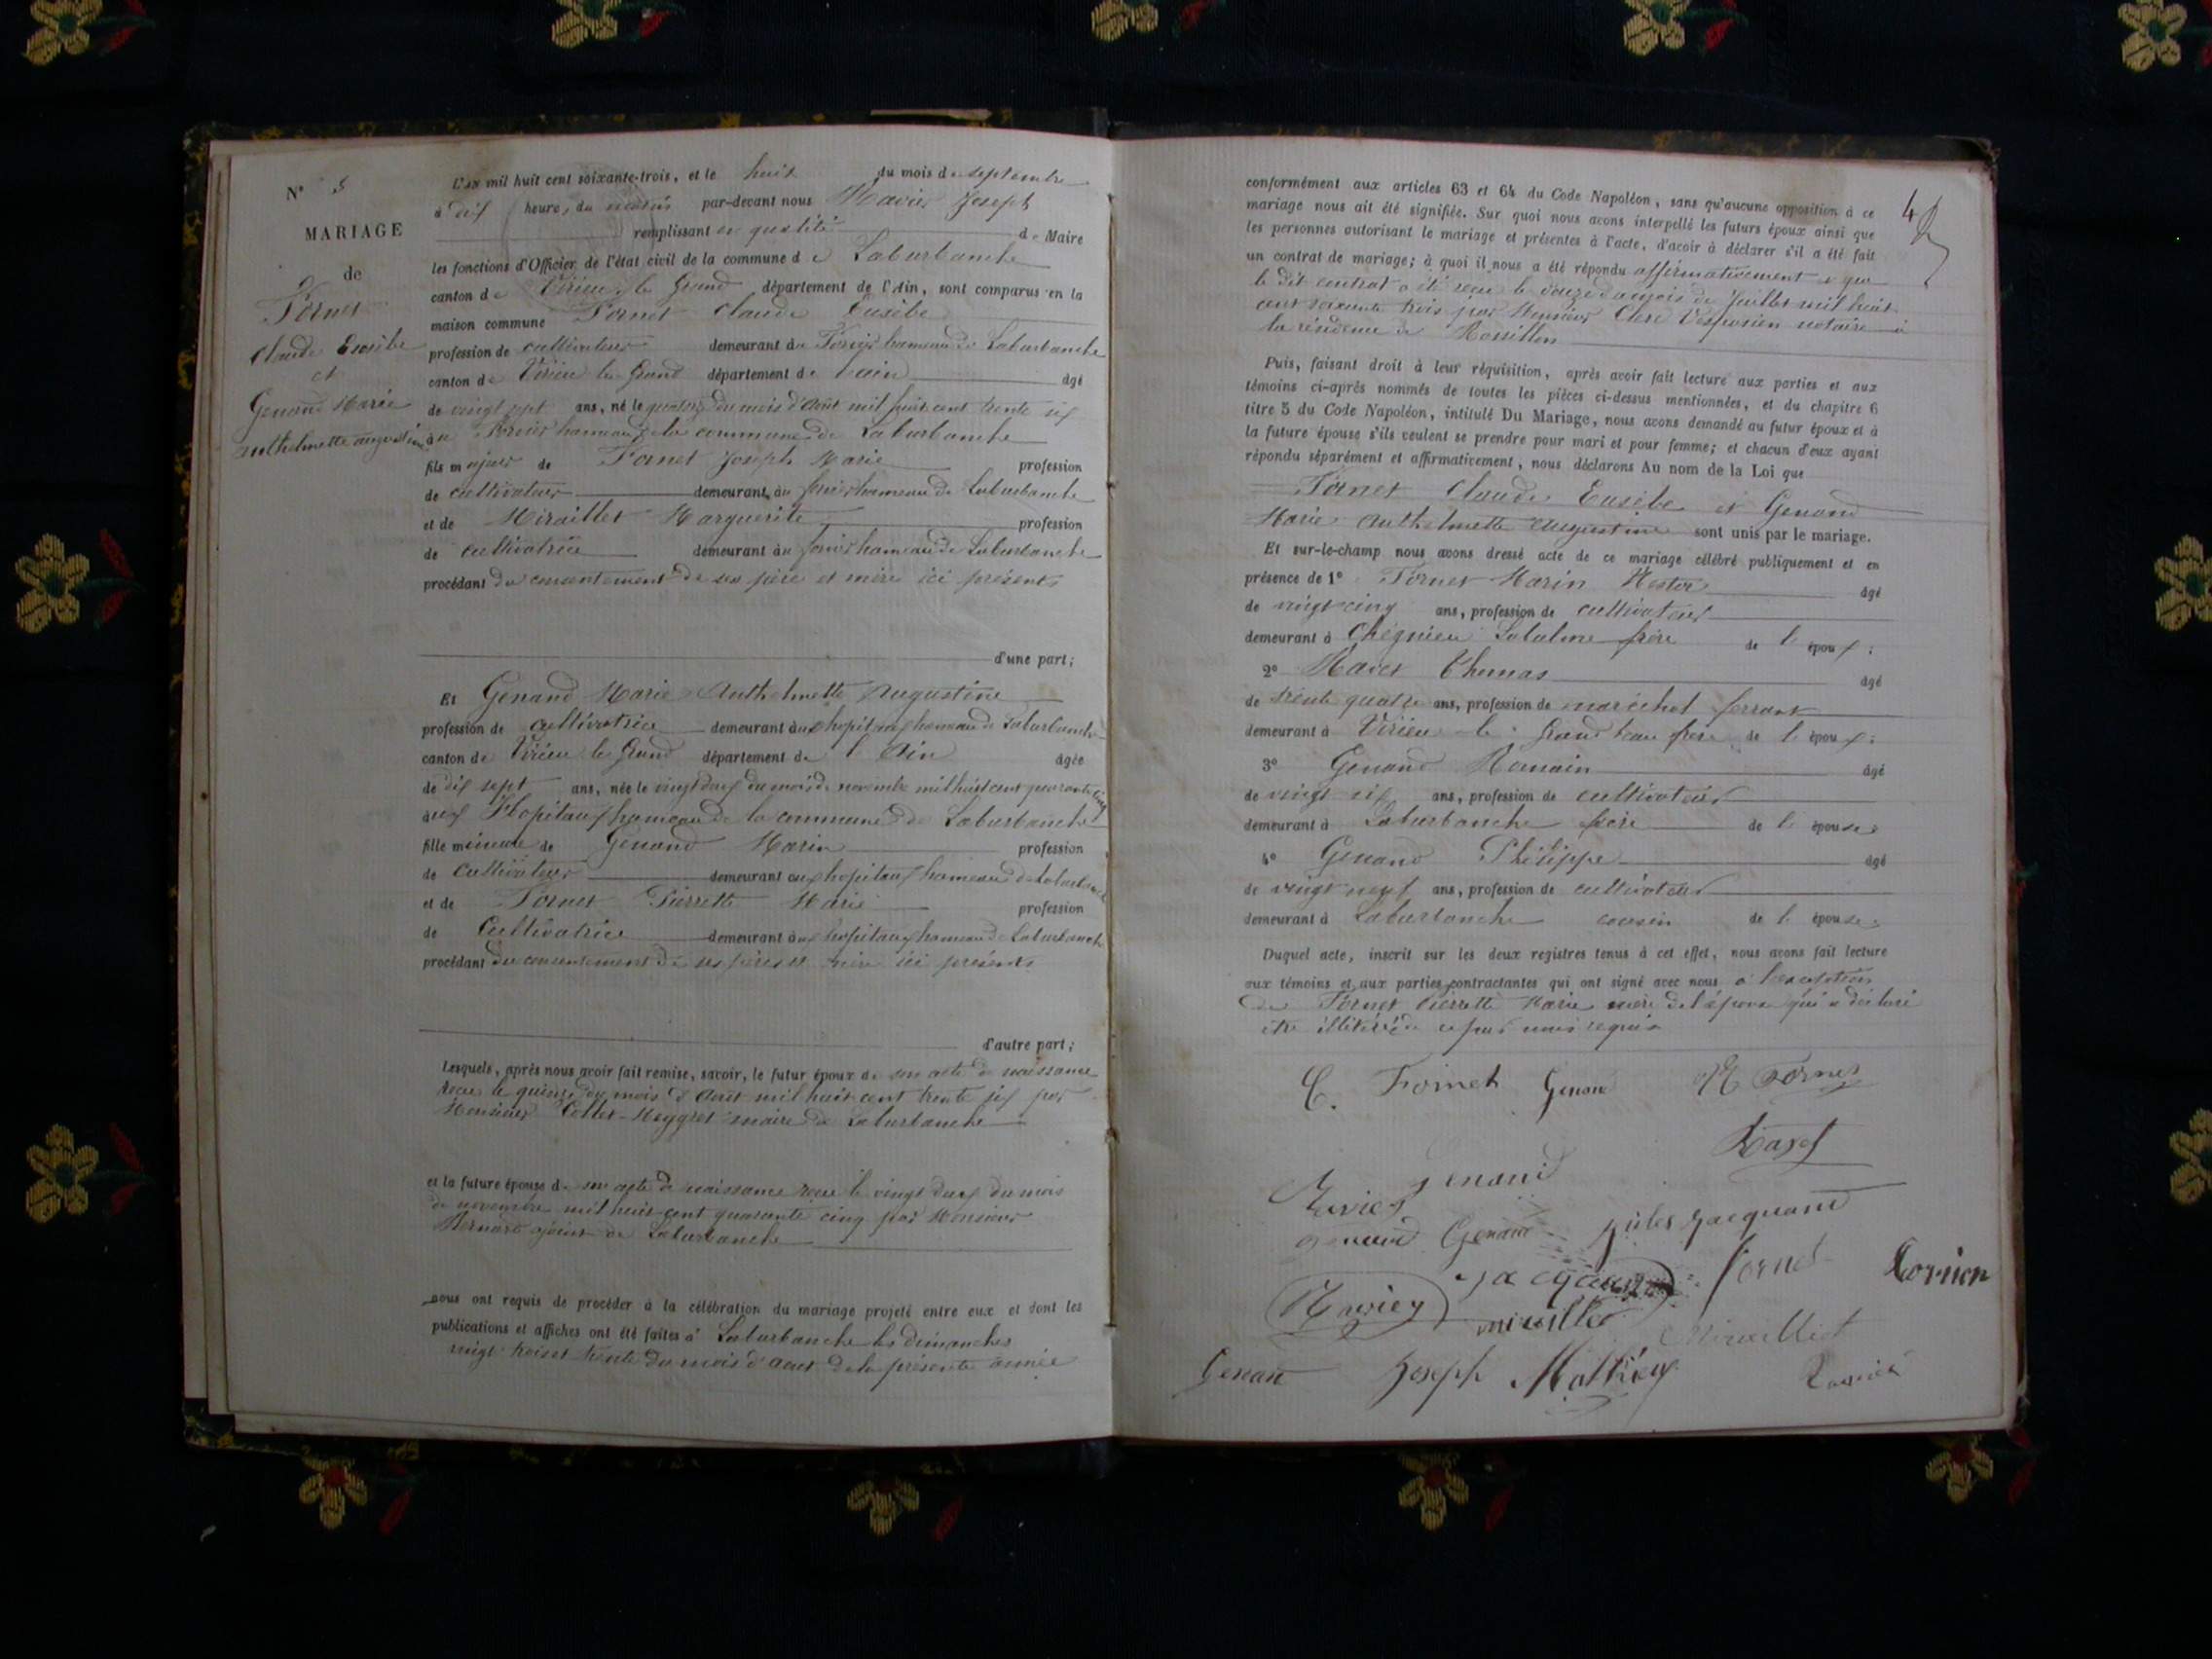 N° 5
MARIAGE
de
Fornet
Claude Eusèbe
et
Genand Marie
Anthelmette Augustine
L'an mil huit cent soixante-trois, et le huit du mois de septembre
à dix heure, du matin par-devant nous Joseph
remplissant en qualité de Maire
les fonctions d'Officier de l'état civil de la commune de Laburbanche
canton de Virieu le Grand département de l'Ain, sont comparus en la
maison commune Fornet Claude Eusèbe
profession de cultivateur demeurant au hameau de Laburbanche
canton de Virieu le Grand département de l'ain âgé
de vingt sept ans, né le quatorze du mois d'Août mil huit cent trente six
au hameau de la commune de Laburbanche
fils majeur de Fornet Joseph Marie profession
de cultivateur demeurant au hameau de Laburbanche
et de Miraillet Marguerite profession
de cultivatrice demeurant au hameau de Laburbanche
procédant du consentement de ses père et mère ici présents
d'une part;
Et Genand Marie Anthelmette Augustine
profession de cultivatrice demeurant aux hopitaux hameau de Laburbanche
canton de Virieu le Grand département de l'Ain âgée
de dix sept ans, née le vingt deux du mois de novembre mil huit cent quarante cinq
aux Hopitaux hameau de la commune de Laburbanche
fille mineure de Genand Marin profession
de cultivateur demeurant aux hopitaux hameau de Laburbanche
et de Fornet Pierrette Marie profession
de Cultivatrice demeurant aux hopitaux hameau de Laburbanche
procédant du consentement de ses père et mère ici présents
d'autre part;
Lesquels, après nous avoir fait remise, savoir, le futur époux de son acte de naissance
recu le quinze du mois d'Aout mil huit cent trente six par
Monsieur Collet-Meygret maire de Laburbanche
et la future épouse de son acte de naissance recue le vingt deux du mois
de novembre mil huit cent quarante cinq par Monsieur
Bernard ajoint de Laburbanche
nous ont requis de procéder à la célébration du mariage projeté entre eux et dont les
publications et affiches ont été faites à Laburbanche les dimanches
vingt trois et trente du mois d'aout de la présente année
4
conformément aux articles 63 et 64 du Code Napoléon, sans qu'aucune opposition à ce
mariage nous ait été signifiée. Sur quoi nous avons interpellé les futurs époux ainsi que
les personnes autorisant le mariage et présentes à l'acte, d'avoir à déclarer s'il a été fait
un contrat de mariage; à quoi il nous a été répondu affirmativement et que
le dit contrat a été recu le douze du mois de Juillet mil huit
cent soixante trois par Monsieur Clerc Vespasien notaire à
la résidence de Rossillon
Puis, faisant droit à leur réquisition, après avoir fait lecture aux parties et aux
témoins ci-après nommés de toutes les pièces ci-dessus mentionnées, et du chapitre 6
titre 5 du Code Napoléon, intitulé Du Mariage, nous avons demandé au futur époux et à
la future épouse s'ils veulent se prendre pour mari et pour femme; et chacun d'eux ayant
répondu séparément et affirmativement, nous déclarons Au nom de la Loi que
Fornet Claude Eusèbe et Genand
Marie Anthelmette Augustine sont unis par le mariage.
Et sur-le-champ nous avons dressé acte de ce mariage célébré publiquement et en
présence de 1° Fornet Marin Nestor âgé
de vingt cinq ans, profession de cultivateur
demeurant à Chégnieu Labalme frère de l'époux;
2° Thomas âgé
de trente quatre ans, profession de maréchal ferrant
demeurant à Virieu le Grand beau frère de l'époux;
3° Genand Romain âgé
de vingt six ans, profession de cultivateur
demeurant à Laburbanche frère de l'épouse;
4° Genand Philippe âgé
de vingt neuf ans, profession de cultivateur
demeurant à Laburbanche cousin de l'épouse;
Duquel acte, inscrit sur les deux registres tenus à cet effet, nous avons fait lecture
aux témoins et aux parties contractantes qui ont signé avec nous à l'exception
de Fornet Pierrette Marie mère de l'épouse qui a déclaré
être illitérée de ce par nous requis
E. Fornet Genand Fornet
genand
genand Genand jules jacquand
jacquand fornet
miraillet Miraillet
Genan Joseph Mathieu